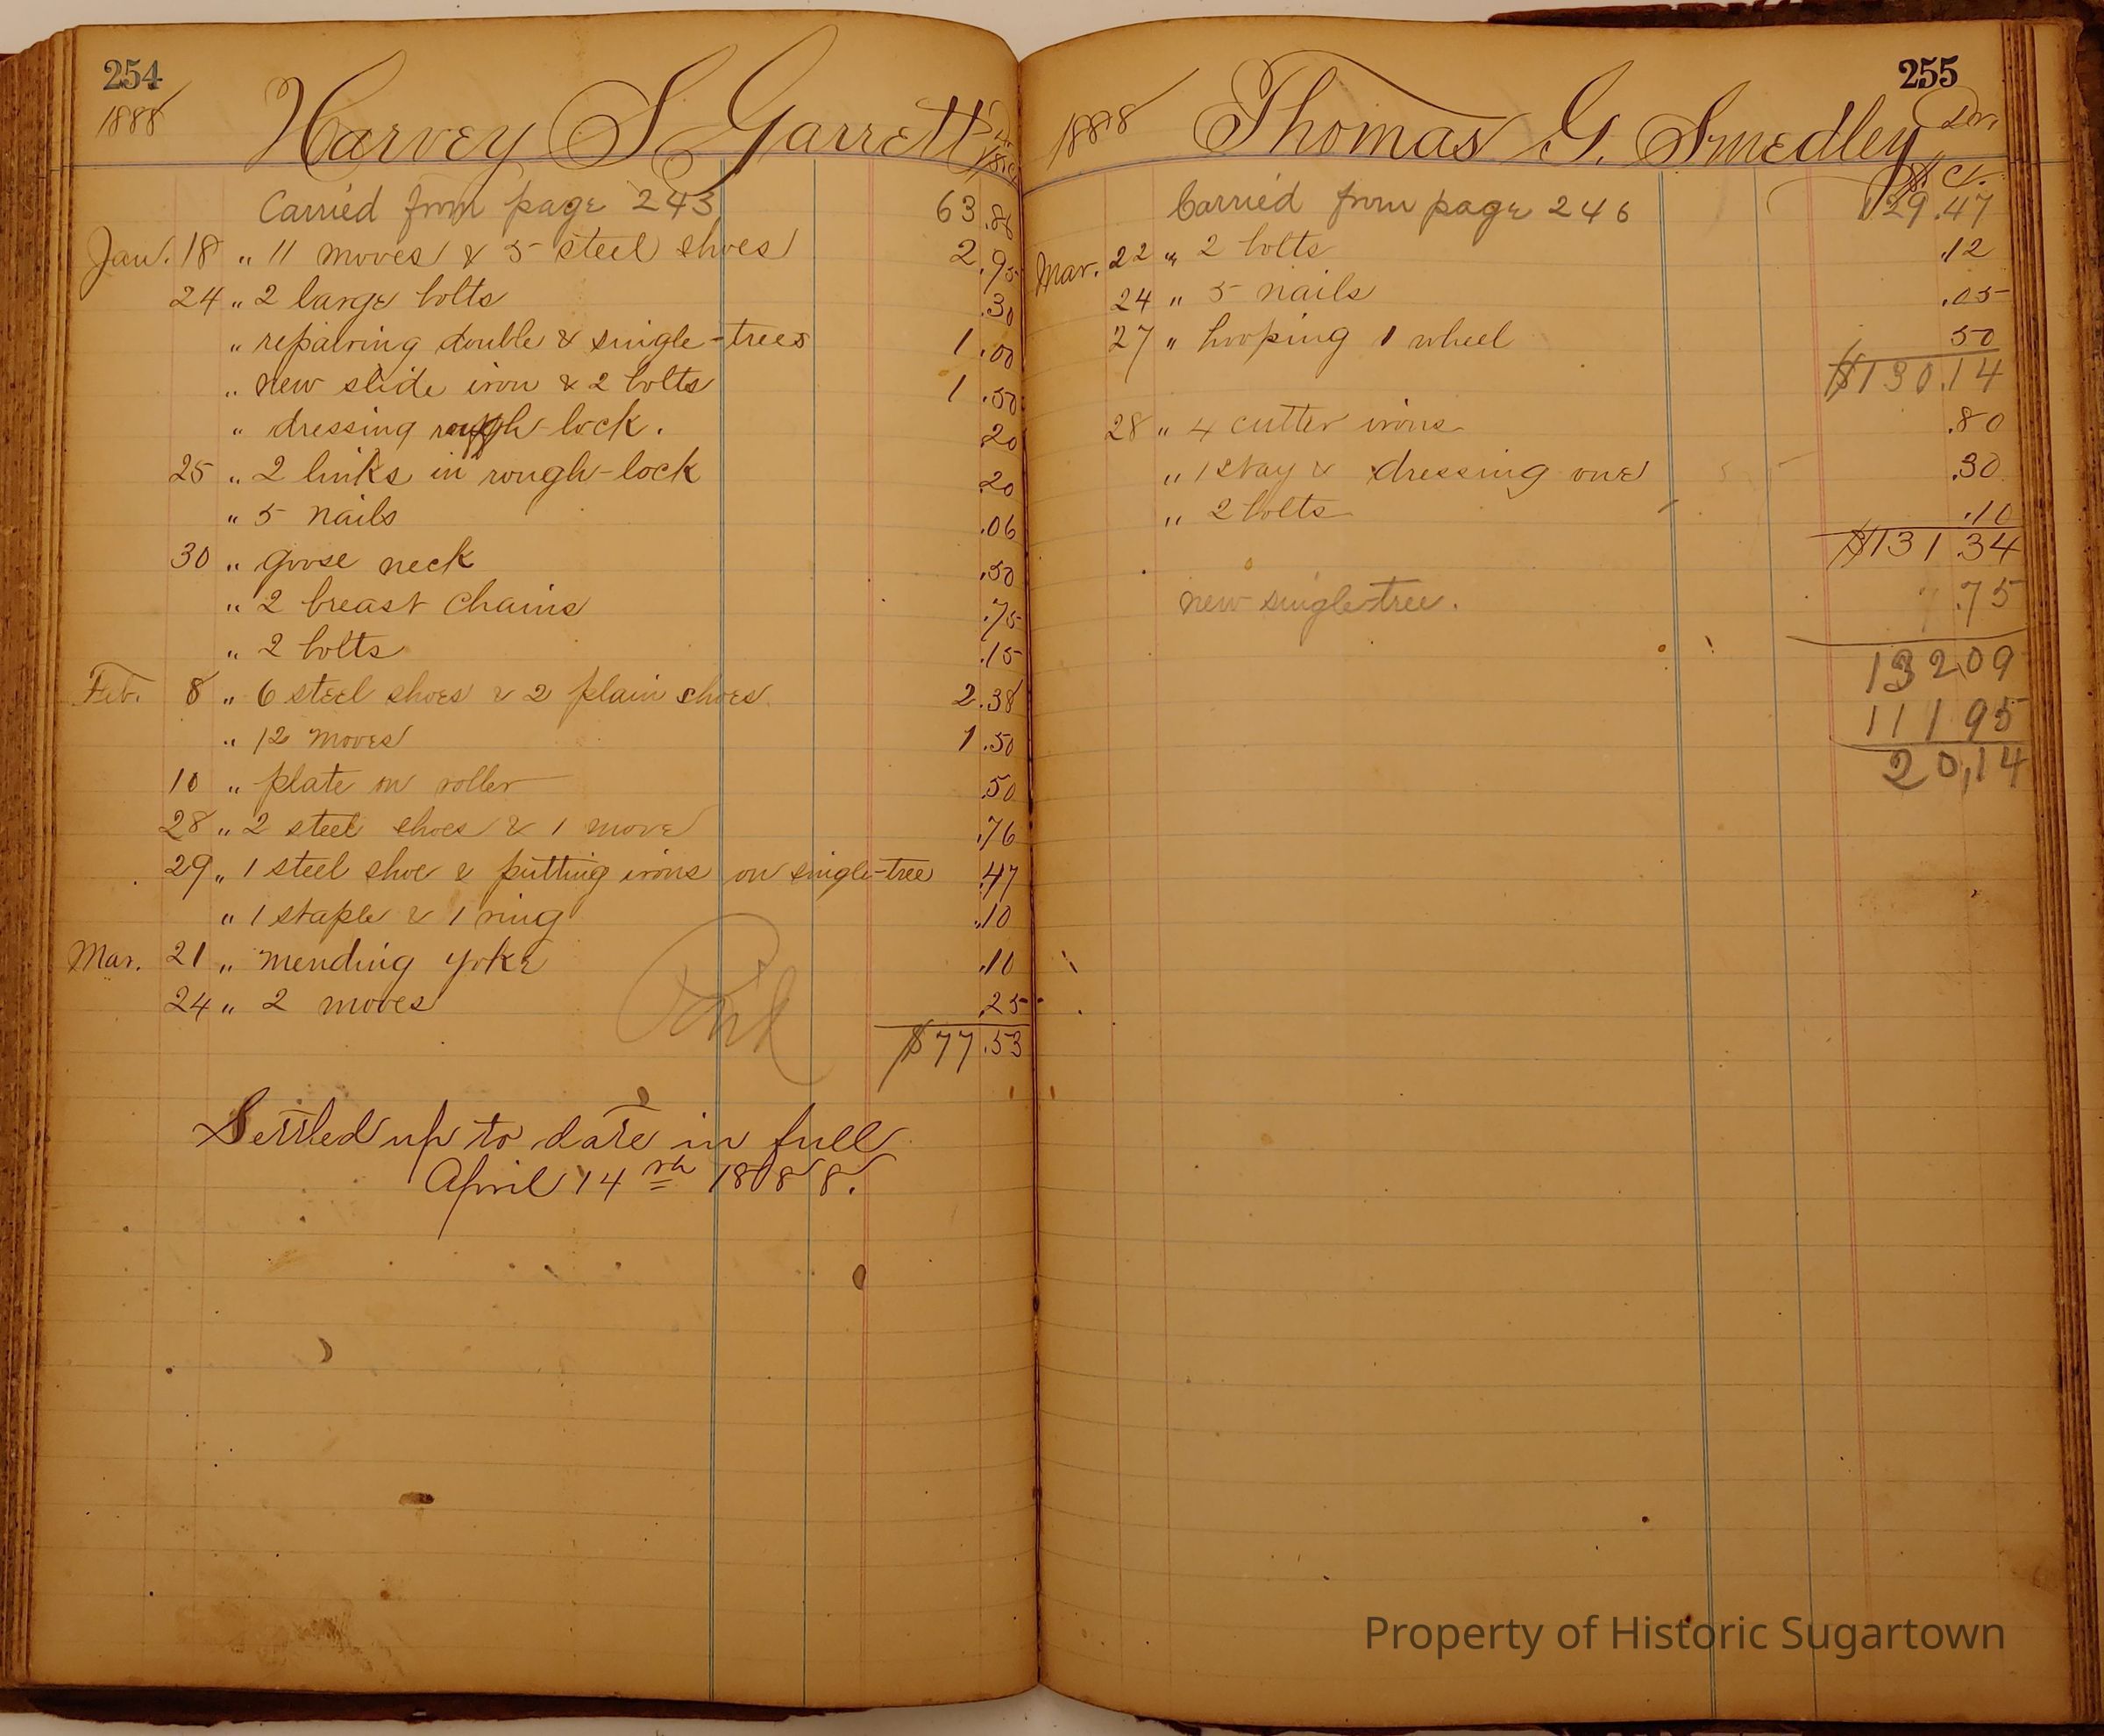 254
1888
Harvey S Garrett Dr.
Carried from page 243 63.86
Jan. 18 " 11 moves & 5 steel shoes 2.95
24 " 2 large bolts .30
" repairing double & single-trees 1.00
" new slide iron & 2 bolts 1.50
" dressing rough-lock. 20
25 " 2 links in rough-lock .20
" 5 nails .06
30 " goose neck .50
" 2 breast chains .75
" 2 bolts .15
Feb. 8 " 6 steel shoes & 2 plain shoes 2.38
" 12 moves 1.50
10 " plate on roller .50
28 " 2 steel shoes & 1 move .76
29 " 1 steel shoe & putting irons on single-tree .47
" 1 staple & 1 ring .10
Mar. 21 " mending yoke .10
24 " 2 moves .25
$77.53
Pai'd
Settled up to date in full
April 14th 1888.
255
1888
Thomas G. Smedley Dr.
$ Ct.
Carried from page 246 129.47
Mar. 22 " 2 bolts .12
24 " 5 nails .05
27 " hooping 1 wheel 50
$130.14
28 " 4 cutter irons .80
" 1 stay & dressing one .30
" 2 bolts .10
$131 34
new single-tree. .75
13209
11195
20,14
Property of Historic Sugartown